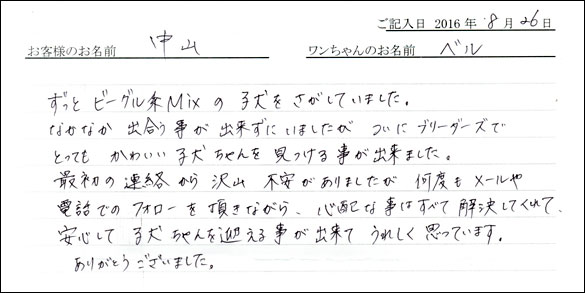 ご記入日 2016年 8月26日
お客様のお名前 中山 ワンちゃんのお名前 ベル
ずっと ビーグル系Mixの 子犬を さがしていました。
なかなか 出合う事が 出来ずにいましたが ついに ブリーダーズで
とっても かわいい 子犬ちゃんを 見つける事が出来ました。
最初の連絡から 沢山 不安がありましたが 何度も メールや
電話での フォローを 頂きながら、心配な事はすべて 解決してくれて、
安心して 子犬ちゃんを迎える事が出来て うれしく 思っています。
ありがとう ございました。